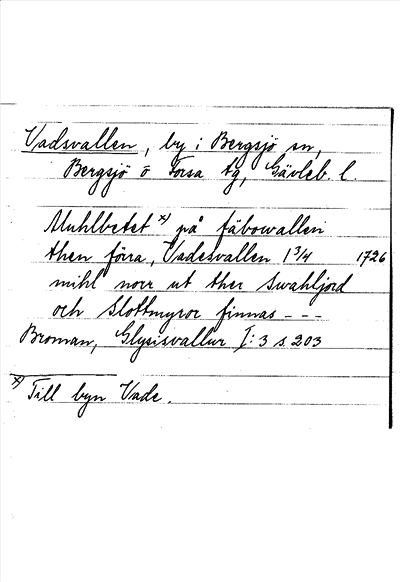 Vadsvallen, by i Bergsjö sn,
Bergsjö o Forsa tg, Gävleb. l.
Muhlbetet x) på fäbowallen
then förra, Vadesvallen 1 3/4 1726
mihl norr ut ther swahljord
och slottmyror finnas - - -
Broman, Glysisvallur I:3 s 203
x) Till byn Vade.